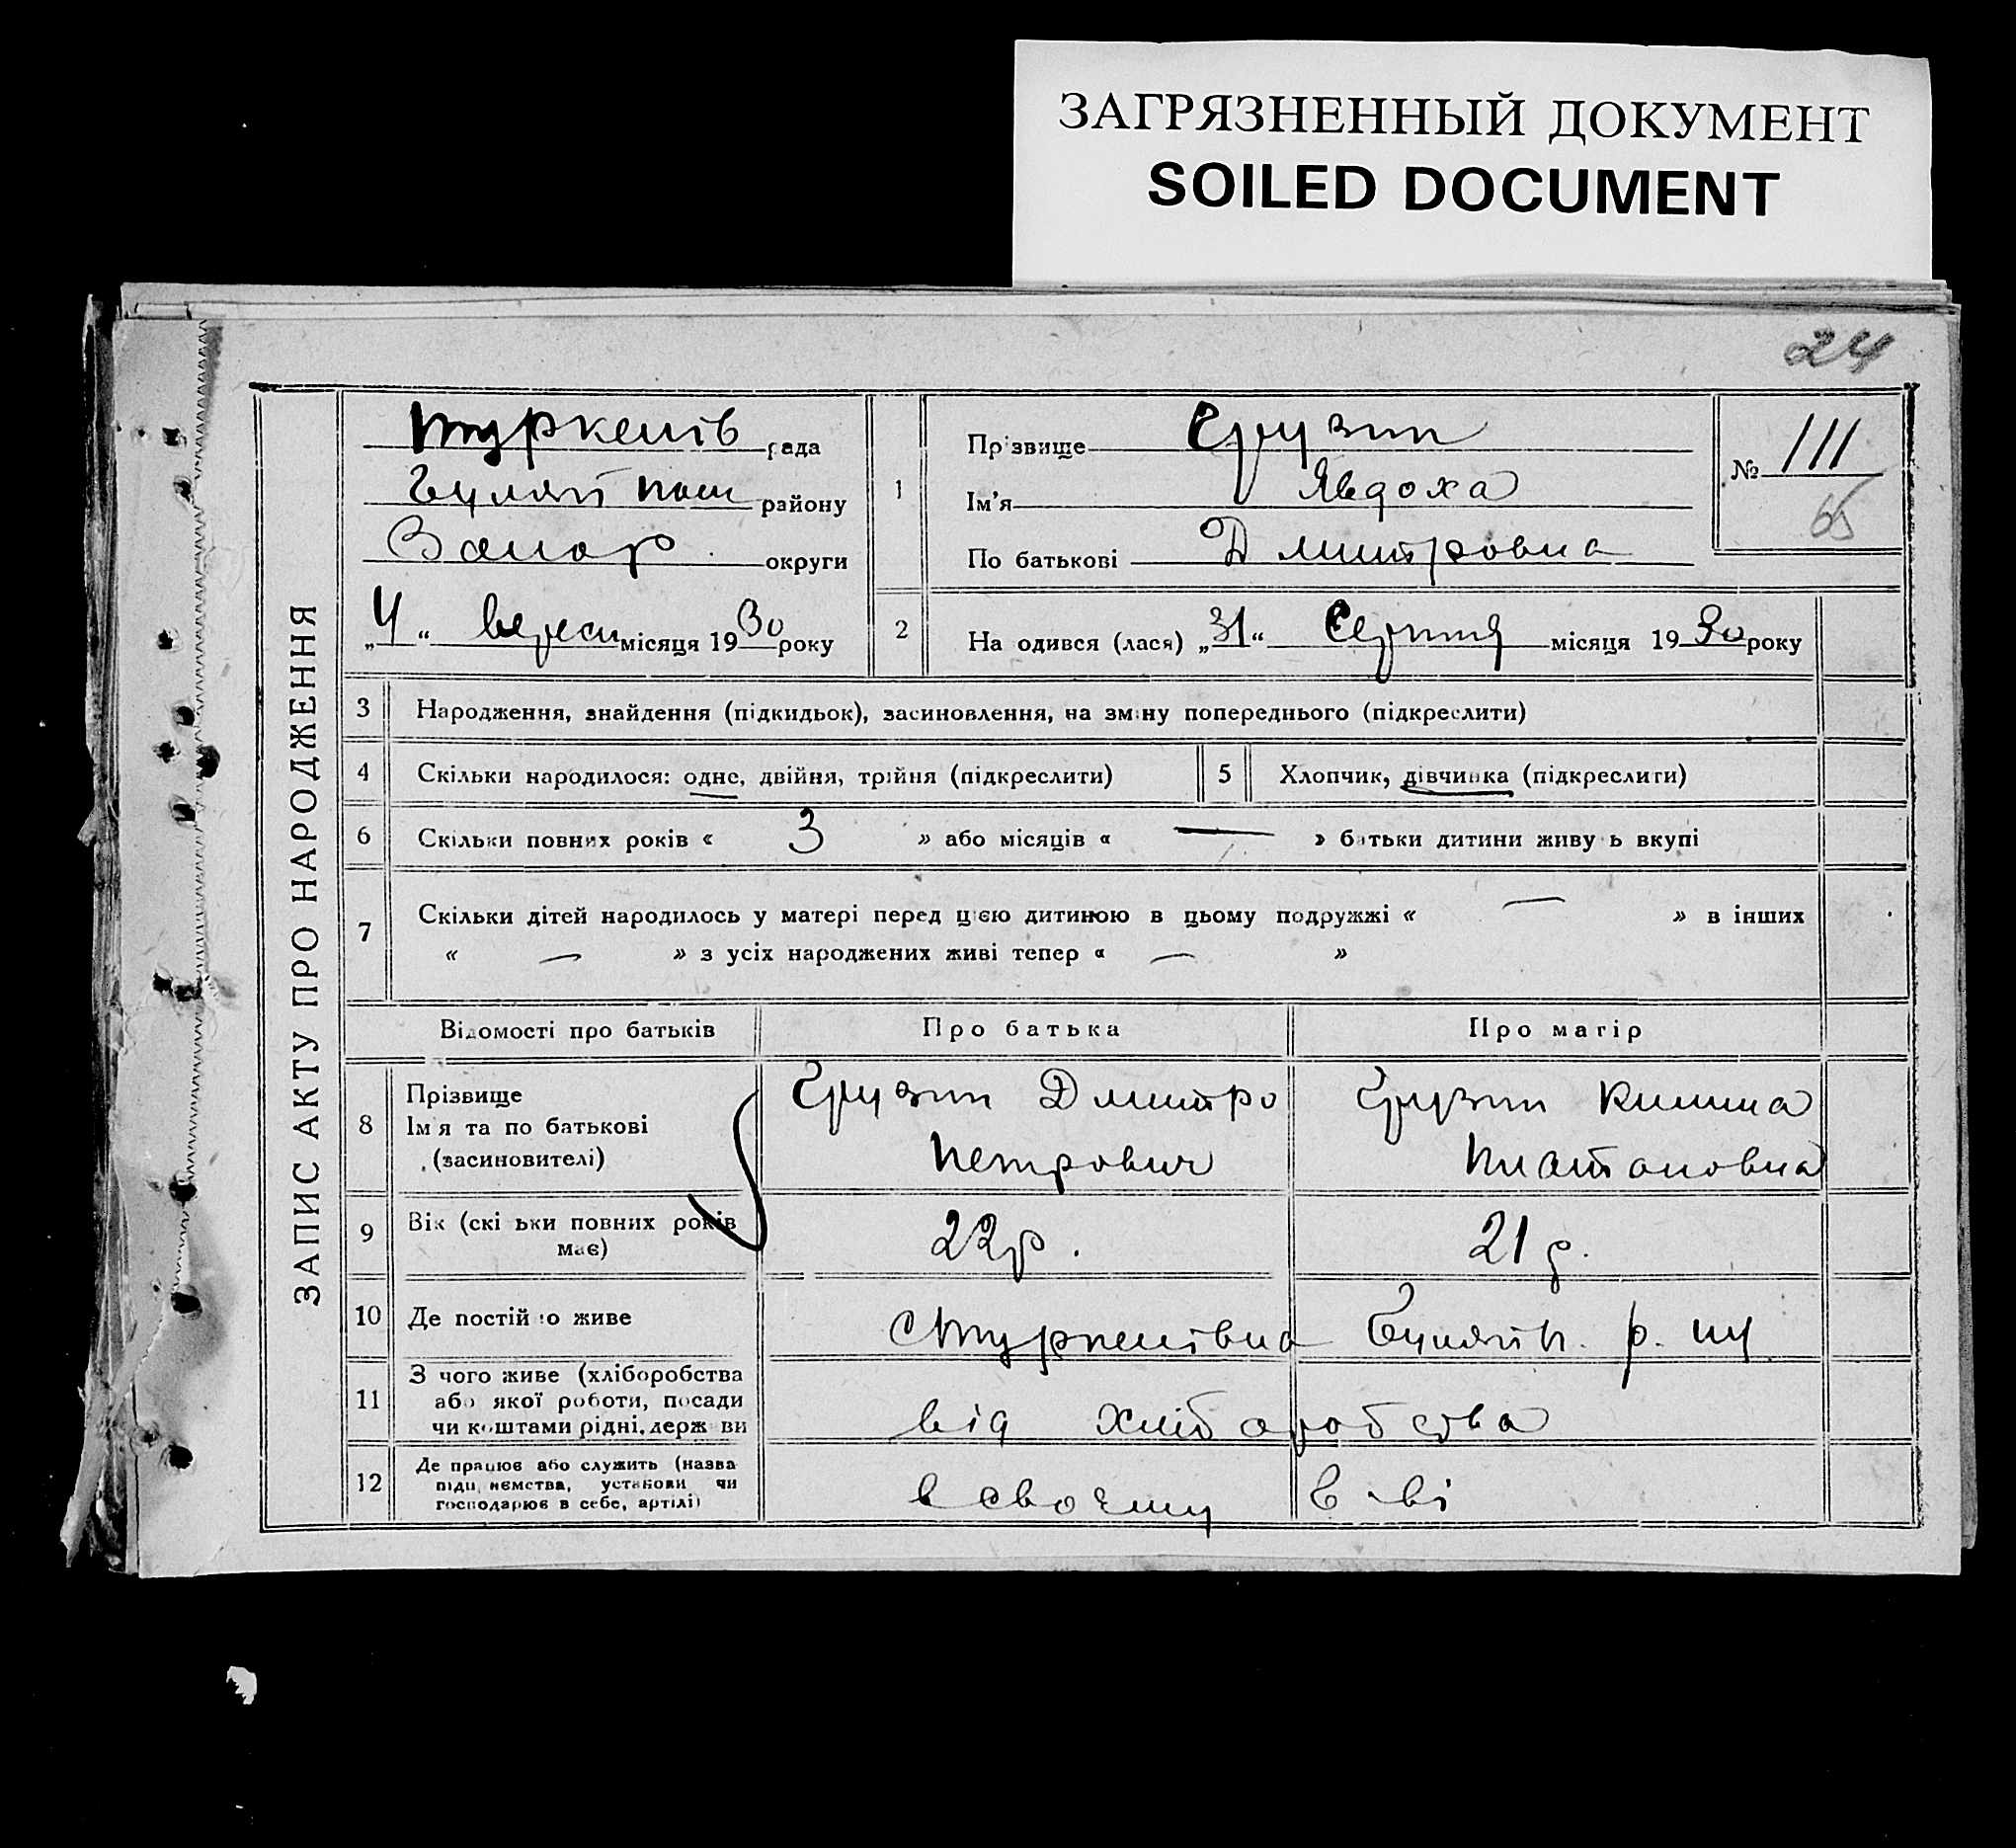 ЗАГРЯЗНЕННЫЙ ДОКУМЕНТ
SOILED DOCUMENT
24
ЗАПИС АКТУ ПРО НАРОДЖЕННЯ
Туркенів рада
Гуляй пол району
Запор. округи
„4“ вересн місяця 1930 року
1
Прізвище Грузин
Ім'я Явдоха
По батькові Дмитровна
№ 111
65
2 На одився (лася) „31“ Серпня місяця 1930 року
3 Народження, знайдення (підкидьок), засиновлення, на зміну попереднього (підкреслити)
4 Скільки народилося: одне, двійня, трійня (підкреслити)
5 Хлопчик, дівчинка (підкреслити)
6 Скільки повних років « 3 » або місяців « — » батьки дитини живу ь вкупі
7 Скільки дітей народилось у матері перед цією дитиною в цьому подружжі « — » в інших
« — » з усіх народжених живі тепер « — »
Відомості про батьків Про батька Про матір
8 Прізвище
Ім'я та по батькові
(засиновителі)
Грузин Дмитро
Петрович
Грузин
Платоновна
9 Вік (скі ьки повних років
має)
22р. 21 р.
10 Де постій о живе Стуркенівка Гуляйп. р.
11 З чого живе (хліборобства
або якої роботи, посади
чи коштами рідні, держ ви
від хліборобства
12 Де працює або служить (назва
підприємства, установи чи
господарює в себе, артілі)
в своєму